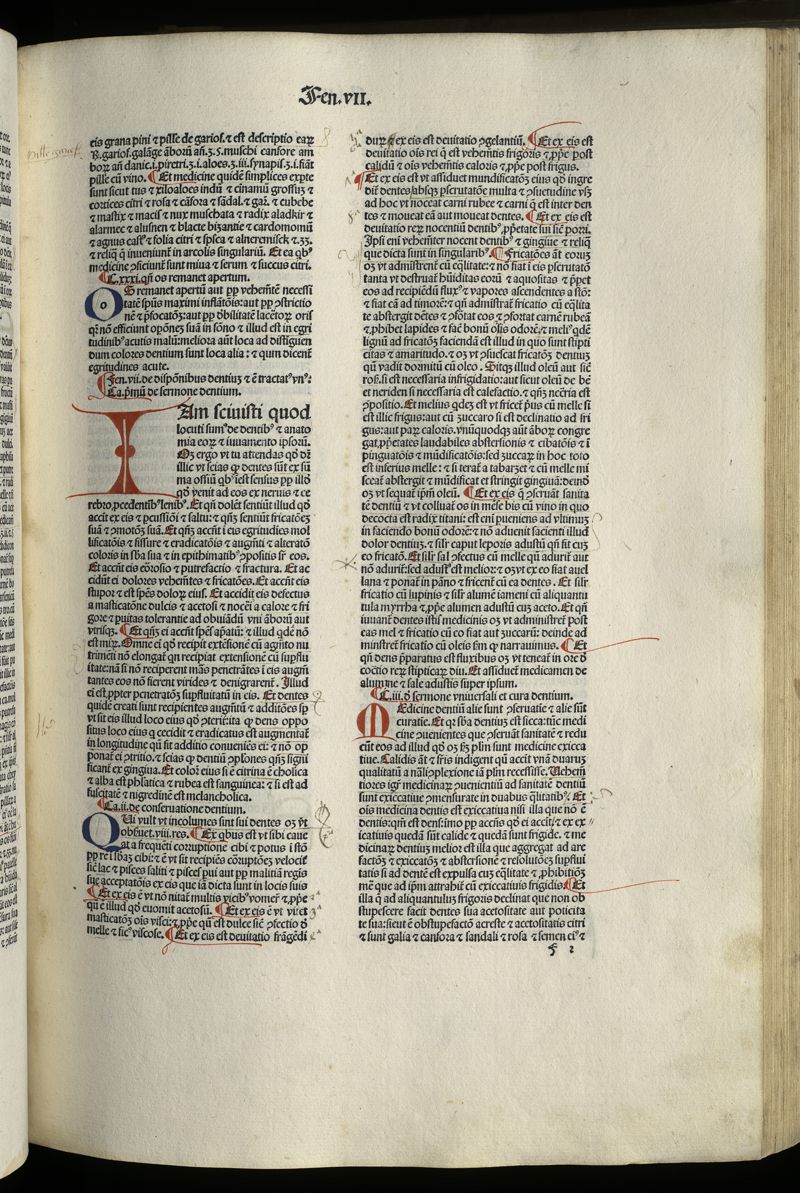 Fen. VII.
eis grana pini ⁊ pisse de gariof. ⁊ est descriptio eaꝝ
bor añ danic. i. piretri. ʒ. i. aloes. ʒ. iii. synapis. ʒ. i. fiãt
pille cũ vino. Et medicine quidẽ simplices expte
sunt sicut tus ⁊ xiloaloes indũ ⁊ cinamũ grossuʒ ⁊
cortices citri ⁊ rosa ⁊ cãfora ⁊ sãdal. ⁊ gaȥ. ⁊ cubebe
⁊ mastix ⁊ macis ⁊ nux muschata ⁊ radix aladkir ⁊
alarmec ⁊ alusnen ⁊ blacte bizantie ⁊ cardomomũ
medicine ꝯsciunt sunt miua ⁊ serum ⁊ succus citri.
Ca. xxxi. qñ os remanet apertum.
OS remanet apertũ aut ꝓp vehemẽtẽ necessi
tatẽ spũs maximi inflatõis: aut ꝓp ꝯstrictio
nẽ ⁊ p̃focatõʒ: aut ꝓp dbilitatẽ lacertoꝝ oris
qꝛ nõ efficiunt opõneʒ suã in sõno ⁊ illud est in egri
tudinibꝰ acutis malũ: meliora aũt loca ad distiguen
dum colores dentium sunt loca alia: ⁊ qum dicent
egritudines acute.
Fen. vii. de dispõnibus dentiuʒ ⁊ ẽ tractatꝰ vnꝰ:
Ca. pꝛimũ de sermone dentium.
IAm scivisti quod
locuti sumꝰ de dentibꝰ ⁊ anato
mia eoꝝ ⁊ iuuamento ipsoꝝ.
Oʒ ergo vt tu attendas qd dĩ
illic vt scias ꝙ dentes sũt ex sũ
ma ossiũ qbꝰ iest sensus ꝓp illd
qd venit ad eos ex neruis ⁊ ce
rebro, pcedentibꝰ lenibꝰ. Et qñ dolẽt sentiũt illud qd
accit ex eis ⁊ pcussiõi ⁊ saltu: ⁊ qñʒ sentiũt fricatõeʒ
suã ⁊ ꝯmotõʒ suã. Et qñʒ accñt i eis egritudies mol
lificatõis ⁊ fissure ⁊ eradicatõis ⁊ augñti ⁊ alteratõ
coloris in sba sua ⁊ in epithimatibꝰ ꝯpositis sr̃ eos.
Et accñt eis coꝛosio ⁊ putrefactio ⁊ fractura. Et ac
cidũt ei dolores vehemẽtes ⁊ fricatões. Et accñt eis
stupor ⁊ est spẽs doloꝝ eius. Et accidit eis defectus
a masticatõne dulcis ⁊ acetosi ⁊ nocẽi a calore ⁊ fri
gore ⁊ puitas tolerantie ad obuiãdũ vni ãborũ aut
vtrisqʒ. Et qñʒ ei accñt spẽs apatũ: ⁊ illud qdẽ nõ
est mirꝝ. Omne ei qd recipit extẽsionẽ cũ augñto nu
trimẽti nõ elongat qn recipiat extensionẽ cũ supflui
itate: nã si nõ reciperent mãs penetrãtes i eis augñ
tantes eos nõ fierent virides ⁊ denigrarent. Illud
ei est, ꝓpter penetratõʒ supfluitatũ in eis. Et dentes
quidẽ creati sunt recipientes augmtũ ⁊ additões sp
vt sit eis illud loco eius qd ꝯterit: ita ꝙ dens oppo
situs loco eius q cecidit ⁊ eradicatus est augmentat
in longitudine qũ sit additio conueniẽs ei: ⁊ nõ op
ponat ei ꝯtritio. ⁊ scias ꝙ dentiũ ꝯplõnes qñʒ signi
ficant ex gingiua. Et coloꝛ eius si ẽ citrina ẽ cholica
⁊ alba est phlatica ⁊ rubea est sanguinea: ⁊ si est ad
fuscitatẽ ⁊ nigredinẽ est melancholica.
Ca. ii. de conseruatione dentium.
QUi vult vt incolumes sint sui dentes oʒ vt
obseruet. viii. res. Ex qbus est vt sibi caue
at a frequẽti corruptione cibi ⁊ potus i stõ
ꝓp rei sbãʒ cibi: ⁊ ẽ vt sit recipiẽs corruptõeʒ velociť
sic lac ⁊ pisces saliti ⁊ pisces pui aut ꝓp malitiã regis
sue acceptatõis ex eis que iã dicta sunt in locis suis
Et ex eis ẽ vt nõ nitat multis vicibꝰ vomeř ⁊ ꝓpe
qñ ẽ illud qd euomit acetosũ. Et ex eis ẽ vt viret
masticatõʒ ois visci: ⁊ ꝓpe qũ est dulce sic ꝯfectio d
melle ⁊ ficꝰ viscose. Et ex eis est deuitatio frãgẽdi
duꝝ ⁊ ex eis est deuitatio ꝯgelantiũ. Et ex eis est
deuitatio ois rei q est vehemẽtis frigoris ⁊ ꝓpe post
calidũ ⁊ ois vehemẽtis caloris ⁊ ꝓpe post frigus.
Et ex eis est vt assiduet mundificatõʒ eius qd ingre
dit̃ dentes, absqʒ pscrutatõe multa ⁊ ꝯsuetudine vsqʒ
ad hoc vt noceat carni rubee ⁊ carni q est inter den
tes ⁊ moueat eã aut moueat dentes. Et ex eis est
deuitatio reꝝ nocentiũ dentibꝰ, ꝓpetate sui sic porri.
Ipsi eni vehemẽter nocent dentibꝰ ⁊ gingiue ⁊ reliq
que dicta sunt in singularibꝰ. Fricatões añt eoruʒ
oʒ vt admistrent̃ cũ eqlitate: ⁊ nõ fiat i eis pscrutatõ
tanta vt destruat hũiditas eoruʒ ⁊ aquositas ⁊ ppet
eos ad recipiẽdũ fluxꝰ ⁊ vapores ascendentes a stõ:
⁊ fiat eã ad timorẽ: ⁊ qñ admistrat̃ fricatio cũ eqlita
te abstergit dẽtes ⁊ ꝯfortat eos ⁊ ꝯfortat carnẽ rubeã
⁊, phibet lapides ⁊ facit bonũ olis odorẽ. ⁊ meliꝰ qdẽ
lignũ ad fricatõʒ faciendã est illud in quo sunt stipti
citas ⁊ amaritudo. ⁊ oʒ vt ꝯsuescat fricatõʒ dentiuʒ
qñ vadit dormitũ cũ oleo. Sitqʒ illud oleũ aut sic
ros. si est necessaria infrigidatio: aut sicut oleũ de bẽ
et neriden si necessaria est calefactio. ⁊ qñʒ necr̃ia est
ꝯpositio. Et melius qdeʒ est vt fricet pus cũ melle si
est illic frigus: aut cũ zuccaro si est declinatio ad fri
gus: aut parꝝ caloris. vnũquodqʒ aũt ãboꝝ congre
gat, ꝓpetates laudabiles abstersionis ⁊ cibatõis ⁊ i
pinguatõis ⁊ mũdificatõis: sed zuccaꝝ in hoc toto
est inferius melle: ⁊ si terat̃ a tabarzet ⁊ cũ melle mi
sceat̃ abstergit ⁊ mũdificat et stringit gingiuã: deind
oʒ vt sequat̃ ip̃m oleũ. Et ex eis q ꝯseruãt sanita
tẽ dentiũ ⁊ vt colluat os in mẽse bis cũ vino in quo
decocta est radix titani: est eni pueniens ad vltimuʒ
in faciendo bonũ odorẽ: ⁊ nõ aduenit facienti illud
dolor dentiuʒ. ⁊ silr caput leporis adustũ qñ fit cuʒ
eo fricatõ. Et silr sal ꝯfectus cũ melle qñ adurit̃ aut
nõ adurit̃: sed adustꝰ est melior: ⁊ oʒ vt ex eo fiat auel
lana ⁊ ponat̃ in pãno ⁊ fricent̃ cũ ea dentes. Et silr
fricatio cũ lupinis ⁊ silr alumẽ iameni cũ aliquantu
tula myrrha ⁊ ꝓpe alumen adustũ cuʒ aceto. Et qñ
iuuant̃ dentes istis medicinis oʒ vt administret̃ post
eas mel ⁊ fricatio cũ eo fiat aut zuccarũ: deinde ad
ministret̃ fricatio cũ oleis sm q narrauimus. Et
qñ dens pparatus est fluxibus oʒ vt teneat̃ in ore d
coctio reꝝ stipticaꝝ diu. Et assiduet̃ medicamen de
alumine ⁊ sale adustis super ipsum.
Ca. iii. d sermone vniuersali et cura dentium.
MEdicine dentiũ alie sunt ꝯseruatie ⁊ alie sũt
curatie. Et qꝛ sba dentiuʒ est sicca: tũc medi
cine ꝯuenientes que ꝯseruãt sanitatẽ ⁊ redu
cũt eos ad illud qd oʒ fʒ plm̃ sunt medicine exicca
tiue. Calidis añt ⁊ fris indigent qñ accit̃ vnã duaruʒ
qualitatũ a nãli ꝯplexione iã plm̃ recessisse. Vehem
tiores igr̃ medicinaꝝ ꝯuenientiũ ad sanitatẽ dentiũ
sunt exiccatiue ꝯmensurate in duabus qlitatibꝰ. Et
ois medicina dentis est exiccatiua nisi illa que nõ ẽ
dentis: qñ est dens: imo ꝓp accñs qd ei accit. ⁊ ex ex
iccatiuis quedã sũt calide ⁊ quedã sunt frigide. ⁊ me
dicinaꝝ dentiuʒ melior est illa que aggregat ad are
factõʒ ⁊ exiccatõʒ ⁊ abstersionẽ ⁊ resolutõeʒ supflui
tatis si ad dentẽ est expulsa cuʒ eqlitate ⁊, phibitiõis
mẽ que ad ip̃m attrahit̃ cũ exiccatiuis frigidis. Et
illa q ad aliquantuluʒ frigoris declinat que non ob
stupescere facit dentes sua acetositate aut põticita
te sua: sicut ẽ obstupefactõ acreste ⁊ acetositatis citri
⁊ sunt galia ⁊ canfora ⁊ sandali ⁊ rosa ⁊ semen eiꝰ ⁊